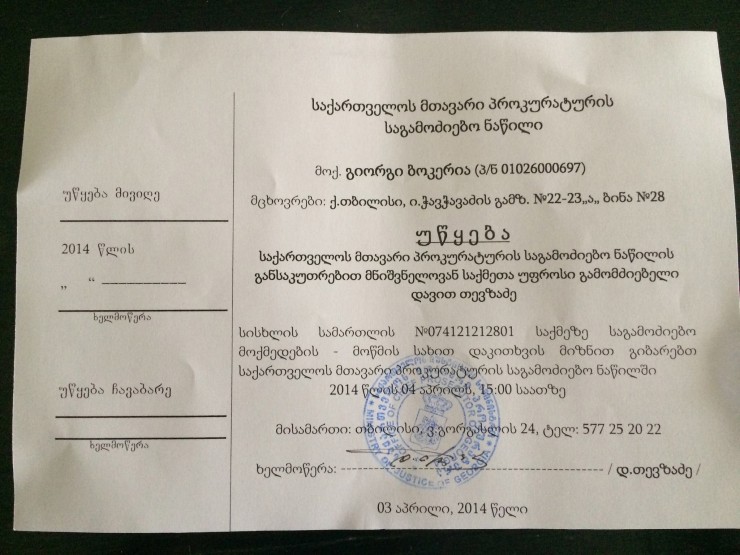 უწყება მივიღე
2014 წლის
„ “ __________
ხელმოწერა
უწყება ჩავაბარე
ხელმოწერა
საქართველოს მთავარი პროკურატურის
საგამოძიებო ნაწილი
მოქ. გიორგი ბოკერია (პ/ნ 01026000697)
მცხოვრები: ქ.თბილისი, ი.ჭავჭავაძის გამზ. №22-23„ა„ ბინა №28
უწყება
საქართველოს მთავარი პროკურატურის საგამოძიებო ნაწილის
განსაკუთრებით მნიშვნელოვან საქმეთა უფროსი გამომძიებელი
დავით თევზაძე
სისხლის სამართლის №074121212801 საქმეზე საგამოძიებო
მოქმედების - მოწმის სახით დაკითხვის მიზნით გიბარებთ
საქართველოს მთავარი პროკურატურის საგამოძიებო ნაწილში
2014 წლის 04 აპრილს, 15:00 საათზე
მისამართი: თბილისი, ვ.გორგასლის 24, ტელ: 577 25 20 22
ხელმოწერა: ------------------------------------------ / დ.თევზაძე /
03 აპრილი, 2014 წელი
MINISTRY OF JUSTICE OF GEORGIA